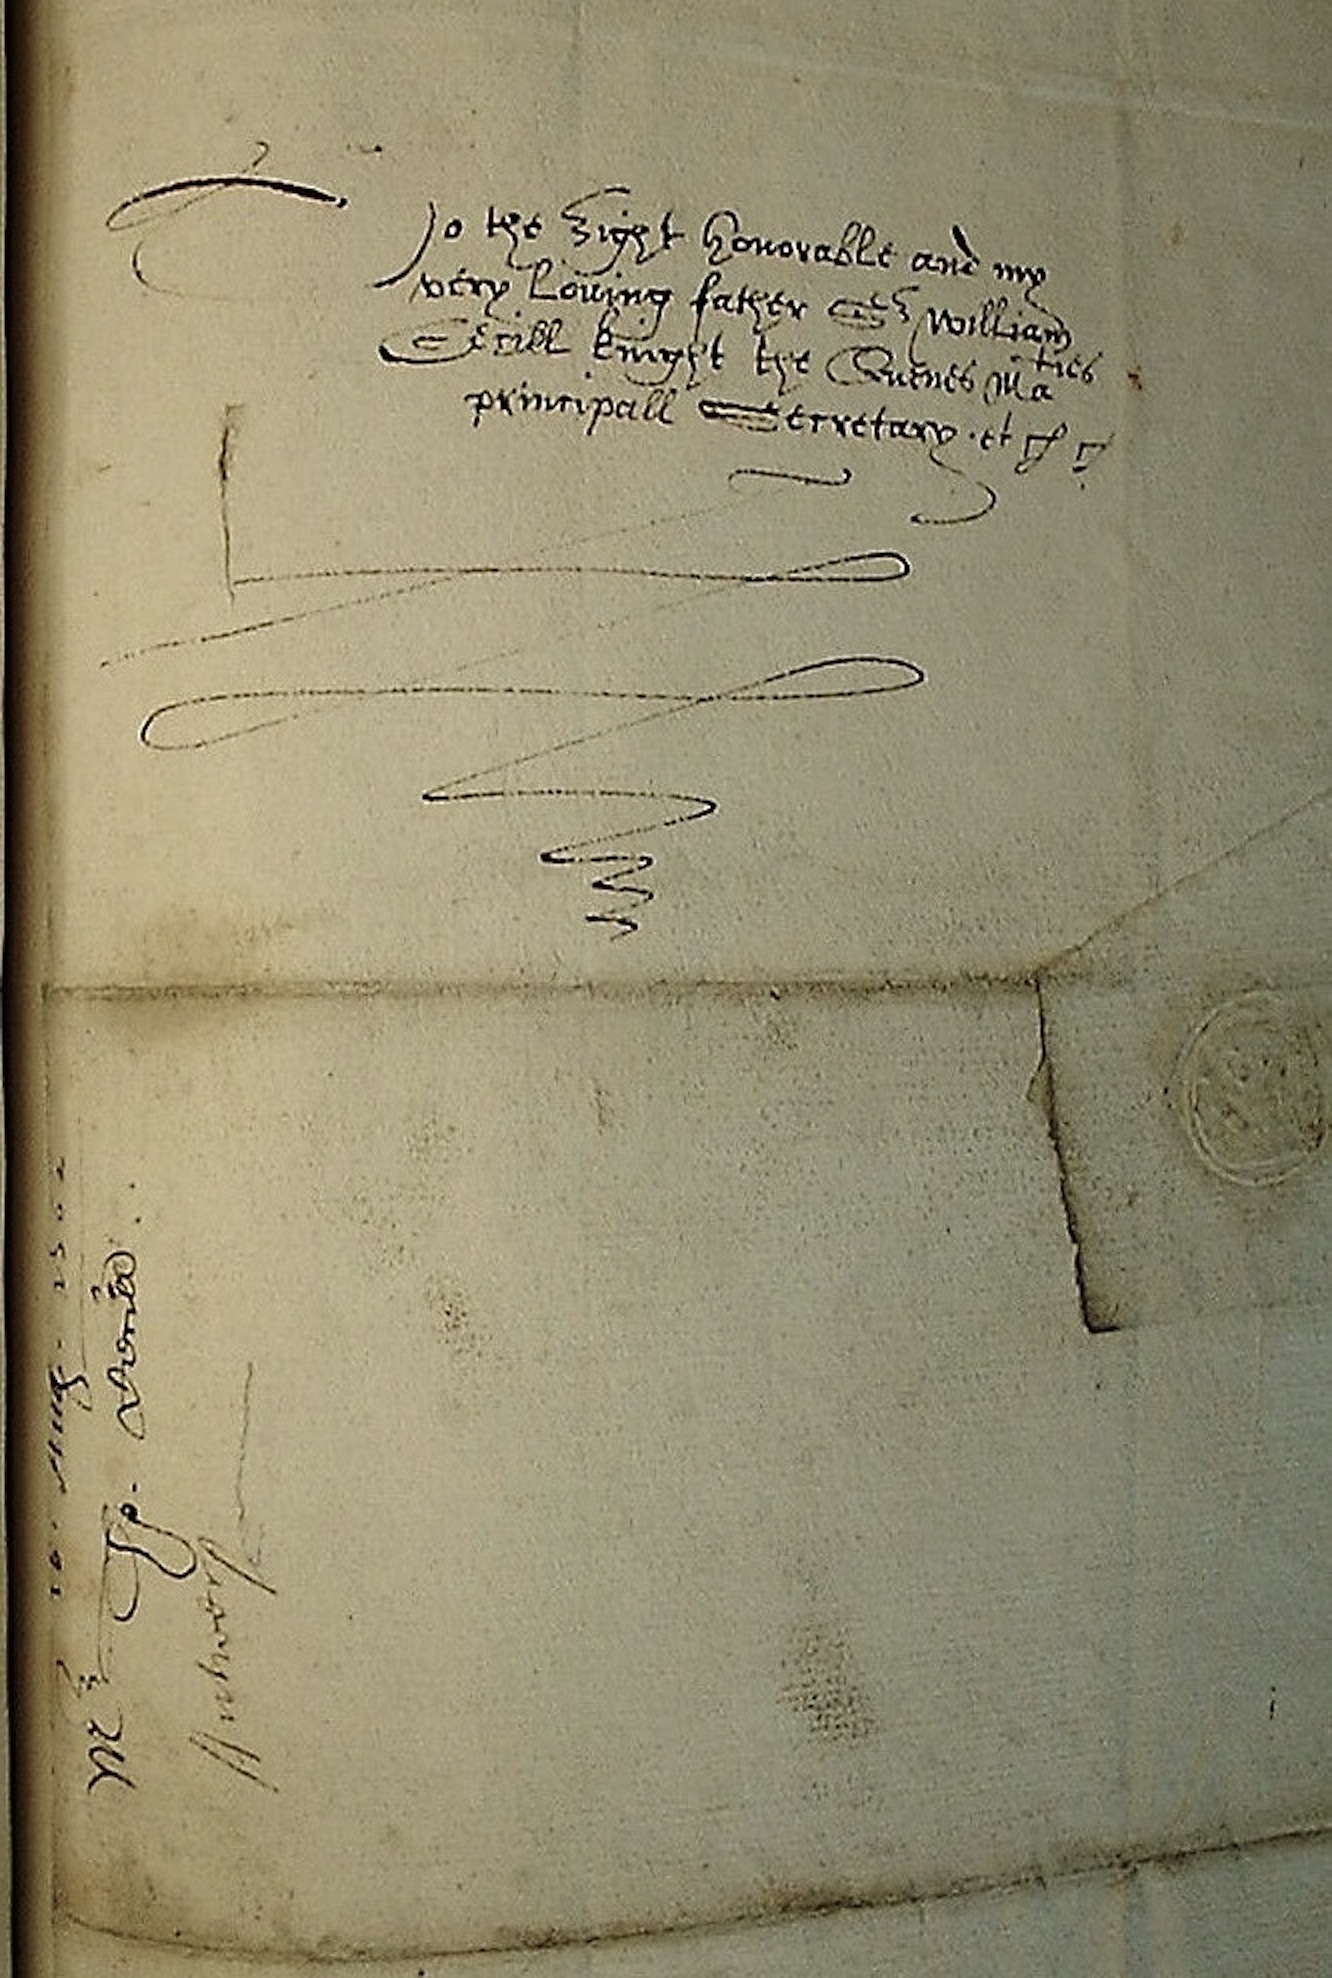 To the Right honorable and my
very Loving father Sr William
Cecill knight the Quenes Maties
principall Secretary . et cĉ c̃
10 . Aug . 1562
Mr Tho.
Antwerp